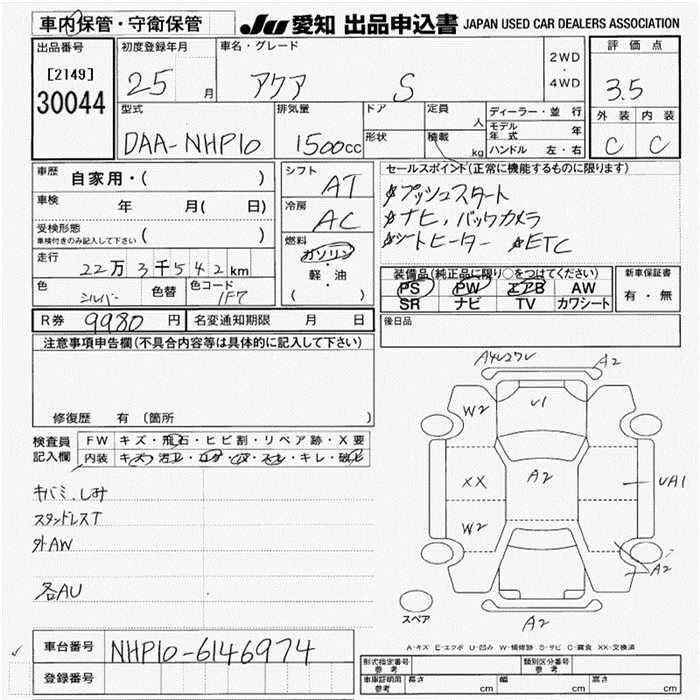 車内保管・守衛保管
JU 愛知 出品申込書 JAPAN USED CAR DEALERS ASSOCIATION
出品番号
[2149]
30044
初度登録年月
25 月
車名・グレード
アクア S
2WD
・
4WD
評価点
3.5
外装 内装
C C
型式
DAA-NHP10
排気量
1500cc
ドア
形状
定員
人
積載
kg
ディーラー・並行
モデル年式 年
ハンドル 左・右
車歴 自家用・( )
車検 年 月( 日)
受検形態
車検付きのみ記入して下さい ( )
走行 22万3千542km
色 シルバー 色替 色コード 1F7
シフト AT
冷房 AC
燃料 ガソリン
・
軽・油
( )
セールスポイント(正常に機能するものに限ります)
プッシュスタート
ナビ,バックカメラ
シートヒーター ETC
装備品(純正品に限り○をつけてください)
PS PW エアB AW
SR ナビ TV カワシート
新車保証書
有・無
R券 9980 円 名変通知期限 月 日
後日品
注意事項申告欄(不具合内容等は具体的に記入して下さい)
修復歴 有 (箇所 )
検査員記入欄
FW キズ・飛石・ヒビ割・リペア跡・X要
内装 キズ・汚レ・コゲ・穴・スレ・キレ・破レ
キバミ、しみ
スタッドレスT
外AW
各AU
A2
W2
U1
XX
A2
UA1
W2
A2
A2
スペア
A-キズ E-エクボ U-凹み W-補修跡 S-サビ C-腐食 XX-交換済
車台番号 NHP10-6146974
登録番号
形式指定番号 参考
類別区分番号 参考
車庫証明用 参考 長さ cm 幅 cm 高さ cm